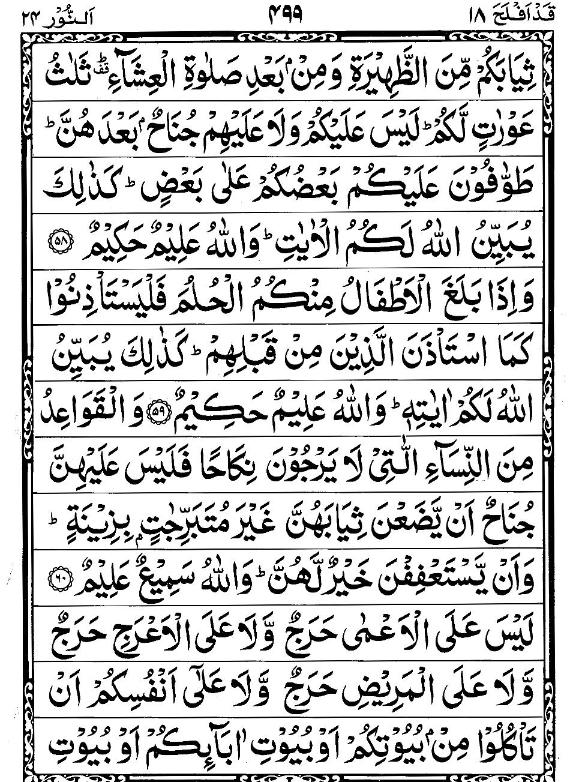 قَدْ اَفْلَحَ ۱۸ ۴۹۹ اَلنُّوْر ۲۴
ثِيَابَكُمْ مِّنَ الظَّهِيْرَةِ وَمِنْۢ بَعْدِ صَلٰوةِ الْعِشَآءِ ؕ ثَلٰثُ
عَوْرٰتٍ لَّكُمْ ؕ لَيْسَ عَلَيْكُمْ وَلَا عَلَيْهِمْ جُنَاحٌۢ بَعْدَ هُنَّ ؕ
طَوّٰفُوْنَ عَلَيْكُمْ بَعْضُكُمْ عَلٰى بَعْضٍ ؕ كَذٰلِكَ
يُبَيِّنُ اللّٰهُ لَكُمُ الْاٰيٰتِ ؕ وَاللّٰهُ عَلِيْمٌ حَكِيْمٌ ﴿۵۸﴾
وَاِذَا بَلَغَ الْاَطْفَالُ مِنْكُمُ الْحُلُمَ فَلْيَسْتَاْذِنُوْا
كَمَا اسْتَاْذَنَ الَّذِيْنَ مِنْ قَبْلِهِمْ ؕ كَذٰلِكَ يُبَيِّنُ
اللّٰهُ لَكُمْ اٰيٰتِهٖ ؕ وَاللّٰهُ عَلِيْمٌ حَكِيْمٌ ﴿۵۹﴾ وَالْقَوَاعِدُ
مِنَ النِّسَآءِ الّٰتِىْ لَا يَرْجُوْنَ نِكَاحًا فَلَيْسَ عَلَيْهِنَّ
جُنَاحٌ اَنْ يَّضَعْنَ ثِيَابَهُنَّ غَيْرَ مُتَبَرِّجٰتٍۭ بِزِيْنَةٍ ؕ
وَاَنْ يَّسْتَعْفِفْنَ خَيْرٌ لَّهُنَّ ؕ وَاللّٰهُ سَمِيْعٌ عَلِيْمٌ ﴿۶۰﴾
لَيْسَ عَلَى الْاَعْمٰى حَرَجٌ وَّلَا عَلَى الْاَعْرَجِ حَرَجٌ
وَّلَا عَلَى الْمَرِيْضِ حَرَجٌ وَّلَا عَلٰٓى اَنْفُسِكُمْ اَنْ
تَاْكُلُوْا مِنْۢ بُيُوْتِكُمْ اَوْ بُيُوْتِ اٰبَآئِكُمْ اَوْ بُيُوْتِ